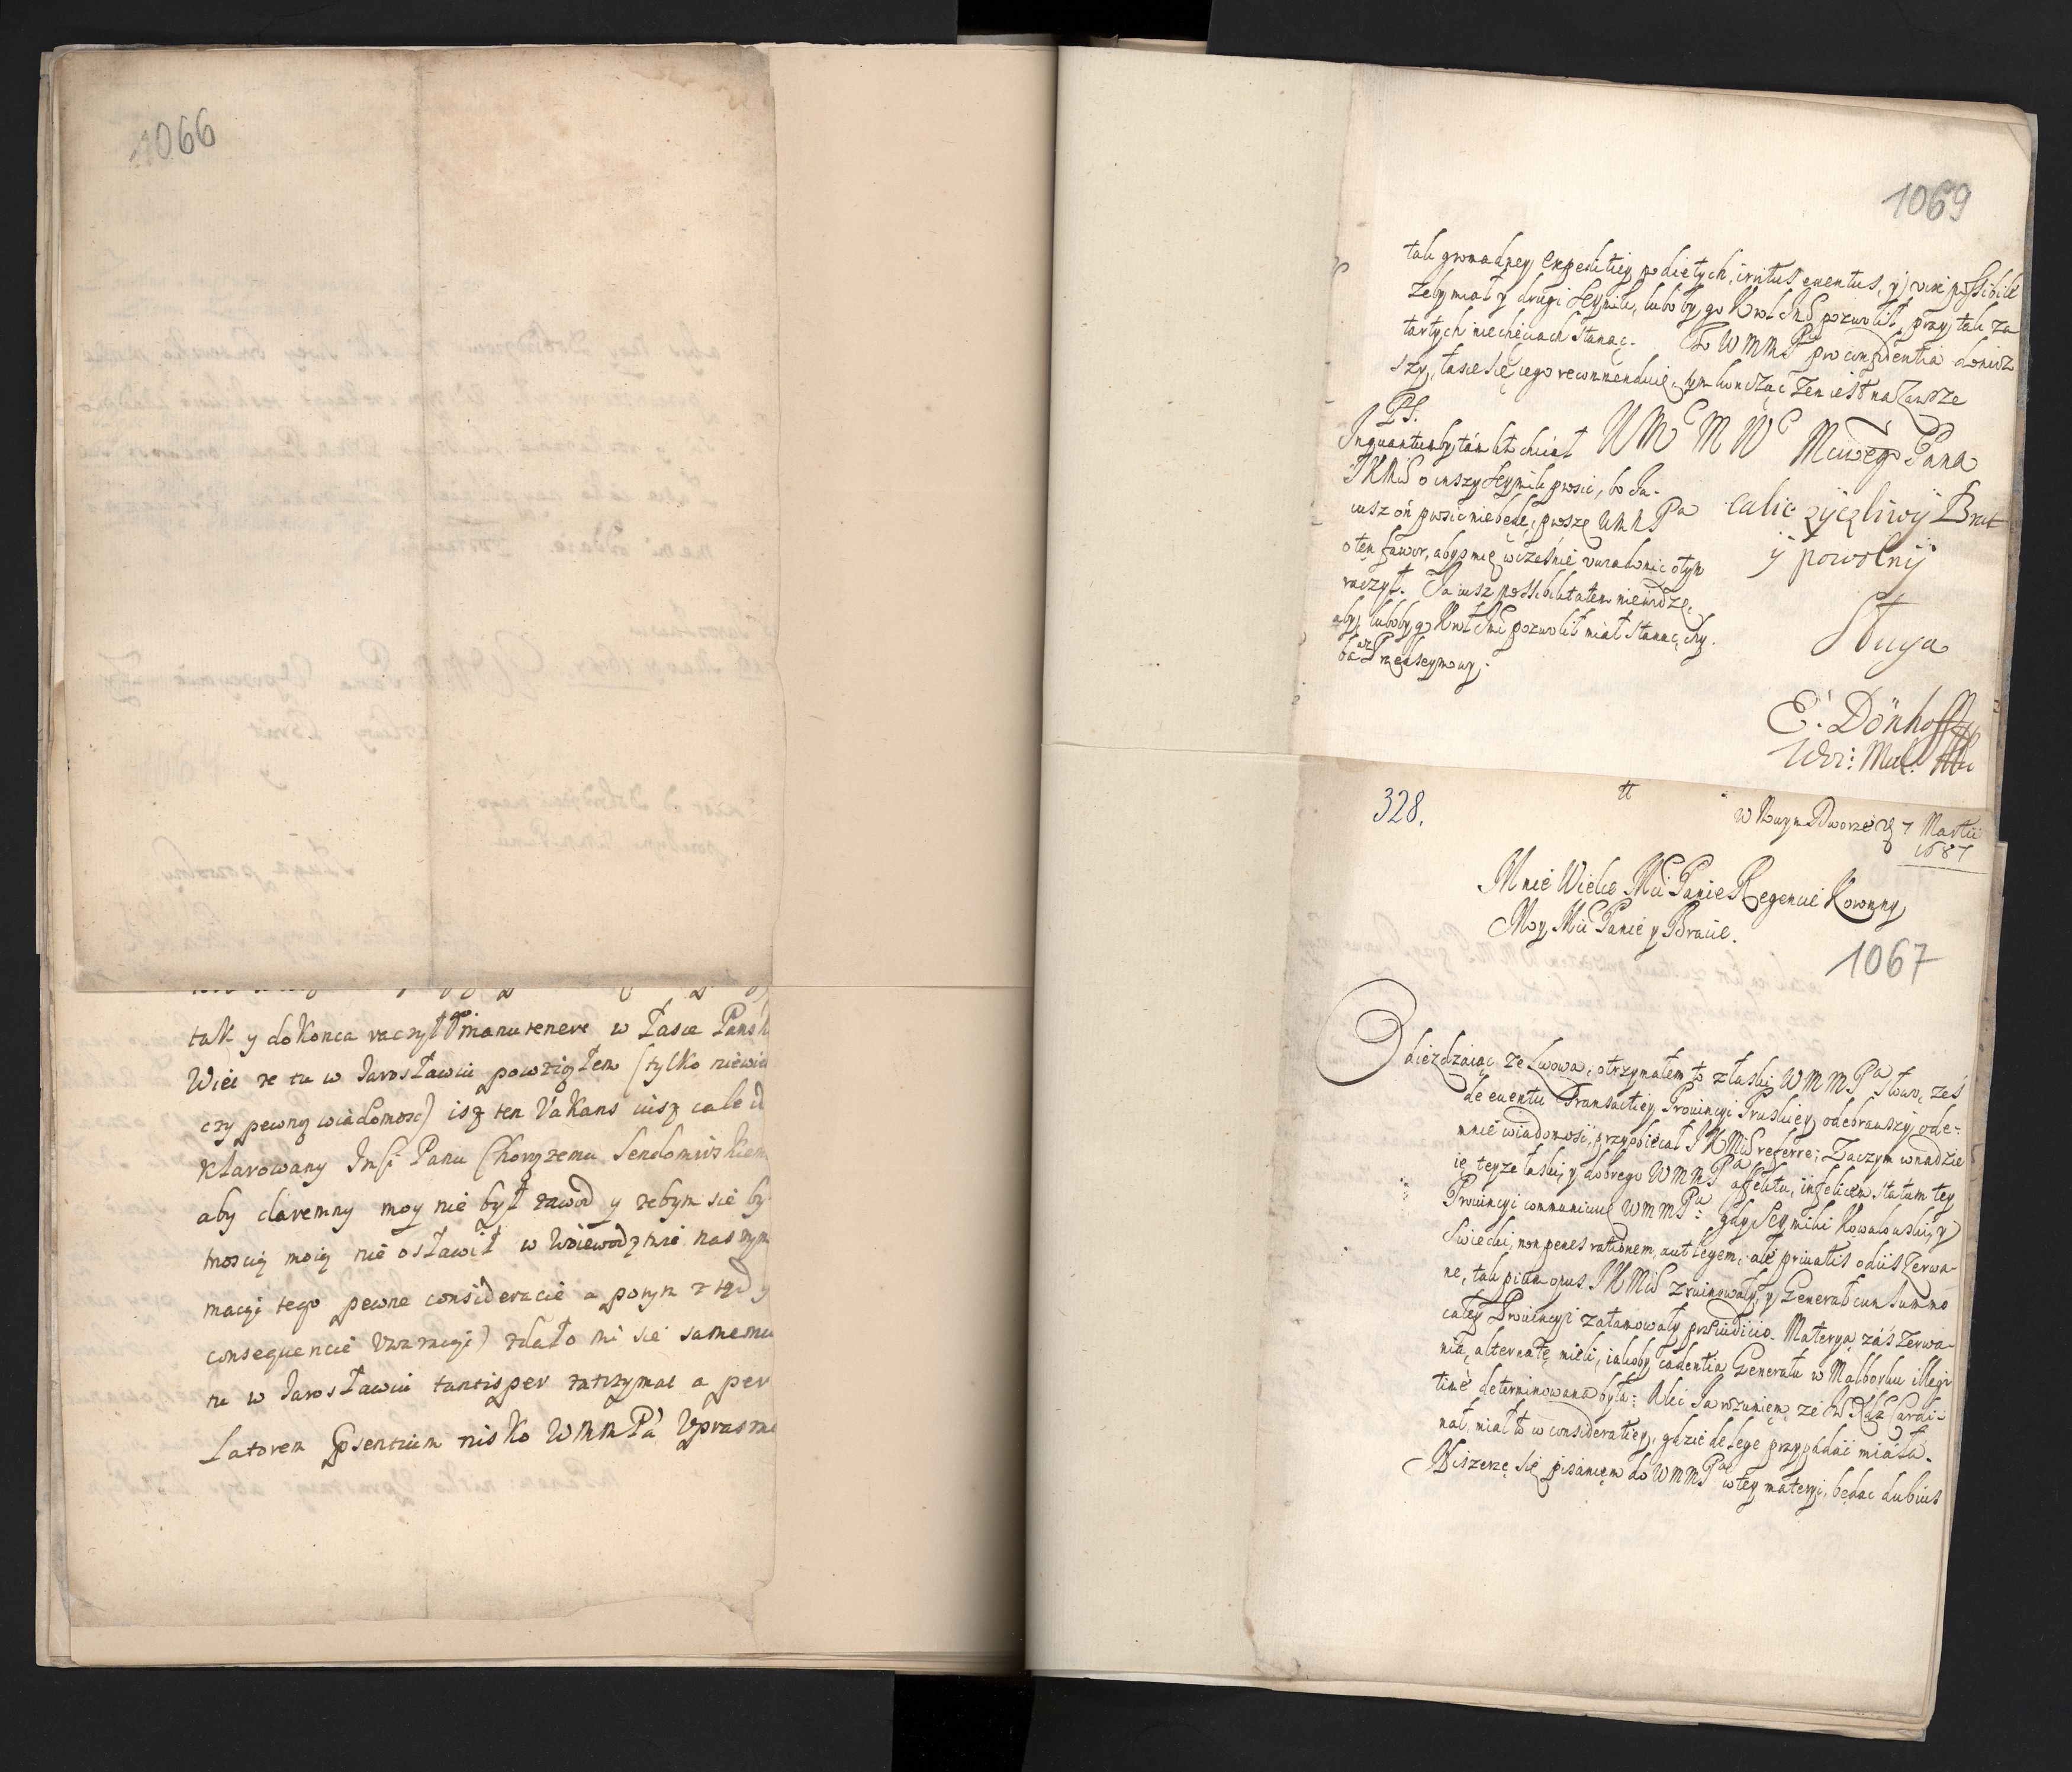 1066
tak y do Konca raczył manutenere w Łasce Pansk
Wiec ze tu w Jarosławiu powziąłem (tylko niewie
czy pewną wiadomosc) isz ten Vakans iusz cale d
Klarowany Jmści Panu Chorązemu Sendomirskiem
aby daremny moy nie był zawod y zebym sie by
tnoscią moią nie osławił w Woiewodztwie naszym
maiąc tego pewne consideracie a potym z tąd y
consequencie Uwazaiąc) zdało mi sie samemu
tu w Jarosławiu tantisper zatrzymac a per
Latorem Psentium nisko WMMPa Vprasza
1069
tak gromadney expeditiey podietych, irritus euentus, y vix possibile
zeby miał y drugi Seymik, lubo by go Krol Jmć pozwolił, przy tak za
tartych niechęciach stanąc. To WMMPu pro confidentia doniosz
szy, łasce się iego recommenduię, tym koncząc zem iest na zawsze
PS.
Inquantumby tam kto chciał
JKMci o inszy Seymik prosic, bo Ja
iusz oń prosic nie będę, proszę WMMPa
o ten fawor, abys mię wczesnie uwiadomic o tym
raczył. Ja iusz possibilitatem niewidzę,
aby, luboby go Krol Jmć pozwolił miał stanąc, chy
ba az Przedseymowy.
WMC M WC Mciwego Pana
calie zyczliwy Brat
y powolny
Sługa
E. Dönhoff
Wor: Mal:
328.
tt
w Nowym Dworze d 7 Martii
1687
Mnie Wielce Mci Panie Regencie Koronny
Moy Mci Panie y Bracie.
1067
Odiezdzaiąc ze Lwowa, otrzymałem to z łaski WMMPa słowo, zes
de euentu Transactiey Prouincyi Pruskiey, odebrawszy ode-
mnie wiadomosc, przyobiecał JKMci referre; Zaczym w nadzie
ię teyze łaski, y dobrego WMMPa affektu, infelicem statum tey
Prouincyi communicuię WMMPu: gdy Seymiki Kowalowski, y
Swiecki, non penes rationem, aut legem, ale priuatis odiis zerwa-
ne, tak pium opus JKMci zruinowały, y Generał cum summo
całey Prouincyi zatamowały prae iudicio. Materyą zás zerwa-
nia, alternatę mieli, iakoby cadentia Generału w Malborku illegi
time determinowana była: Alec Ja rozumiem, ze Xże Kardi-
nał, miał to w consideratiey, gdzie de lege przypádác miáła.
Niszerzę się pisaniem do WMMPa w tey materyi, będąc dubius